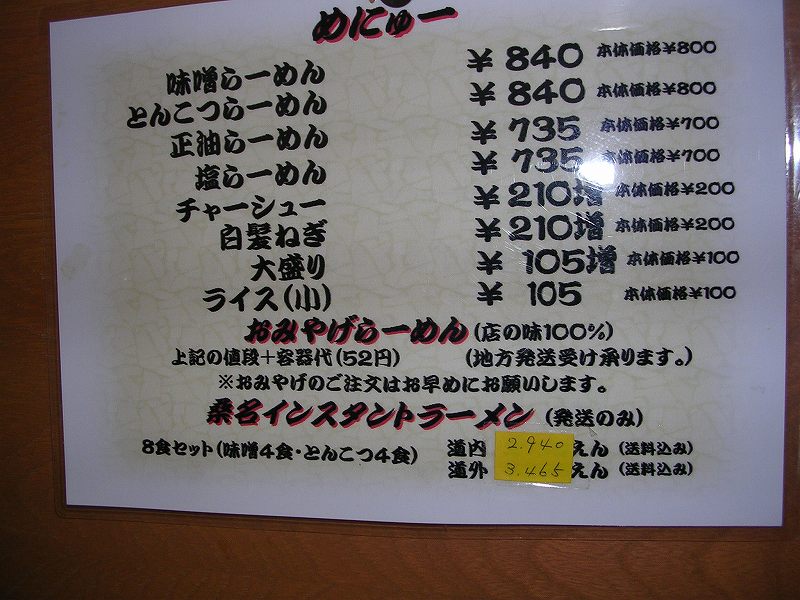 めにゅー
味噌らーめん ¥840 本体価格¥800
とんこつらーめん ¥840 本体価格¥800
正油らーめん ¥735 本体価格¥700
塩らーめん ¥735 本体価格¥700
チャーシュー ¥210増 本体価格¥200
白髪ねぎ ¥210増 本体価格¥200
大盛り ¥105増 本体価格¥100
ライス(小) ¥105 本体価格¥100
おみやげらーめん(店の味100%)
上記の値段+容器代(52円) (地方発送受け承ります。)
※おみやげのご注文はお早めにお願いします。
桑名インスタントラーメン (発送のみ)
8食セット(味噌4食・とんこつ4食) 道内 2.940えん (送料込み)
道外 3.465えん (送料込み)